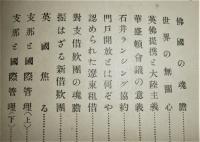 佛國の魂膽
世界の無關心
英佛提携と大陸主義
華盛頓會議の意義
石井ランシング協約
門戶開放とは何ぞや
認められた遼東租借
對支借款團の魂膽
振はざる新借款團
英國焦る
支那と國際管理(上)
支那と國際管理(下)